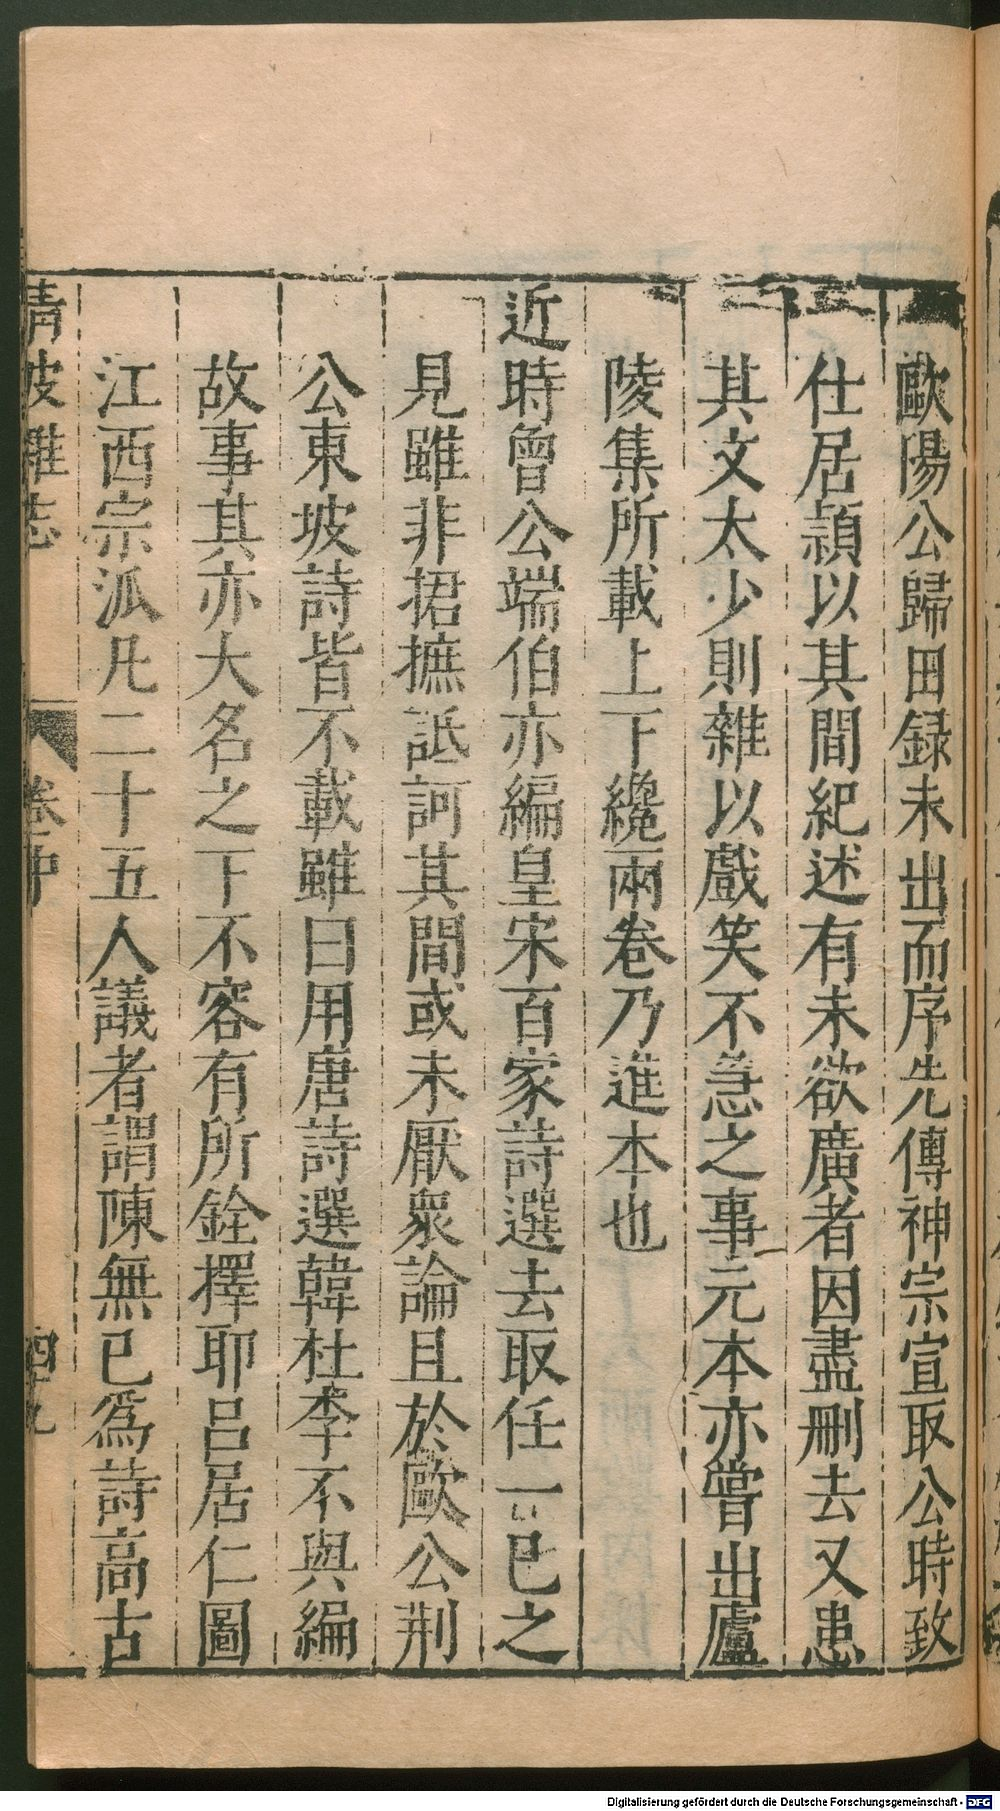 歐陽公歸田録未出而序先傳神宗宣取公時致
仕居頴以其間紀述有未欲廣者因盡刪去又患
其文太少則雜以戲笑不急之事元本亦嘗出廬
陵集所載上下纔兩卷乃進本也
近時曾公端伯亦編皇宋百家詩選去取任一己之
見雖非捃摭詆訶其間或未厭衆論且於歐公荆
公東坡詩皆不載雖曰用唐詩選韓杜李不與編
故事其亦大名之下不容有所銓擇耶呂居仁圖
江西宗派凡二十五人議者謂陳無已爲詩高古
清波雜志
卷中
四九
Digitalisierung gefördert durch die Deutsche Forschungsgemeinschaft - DFG